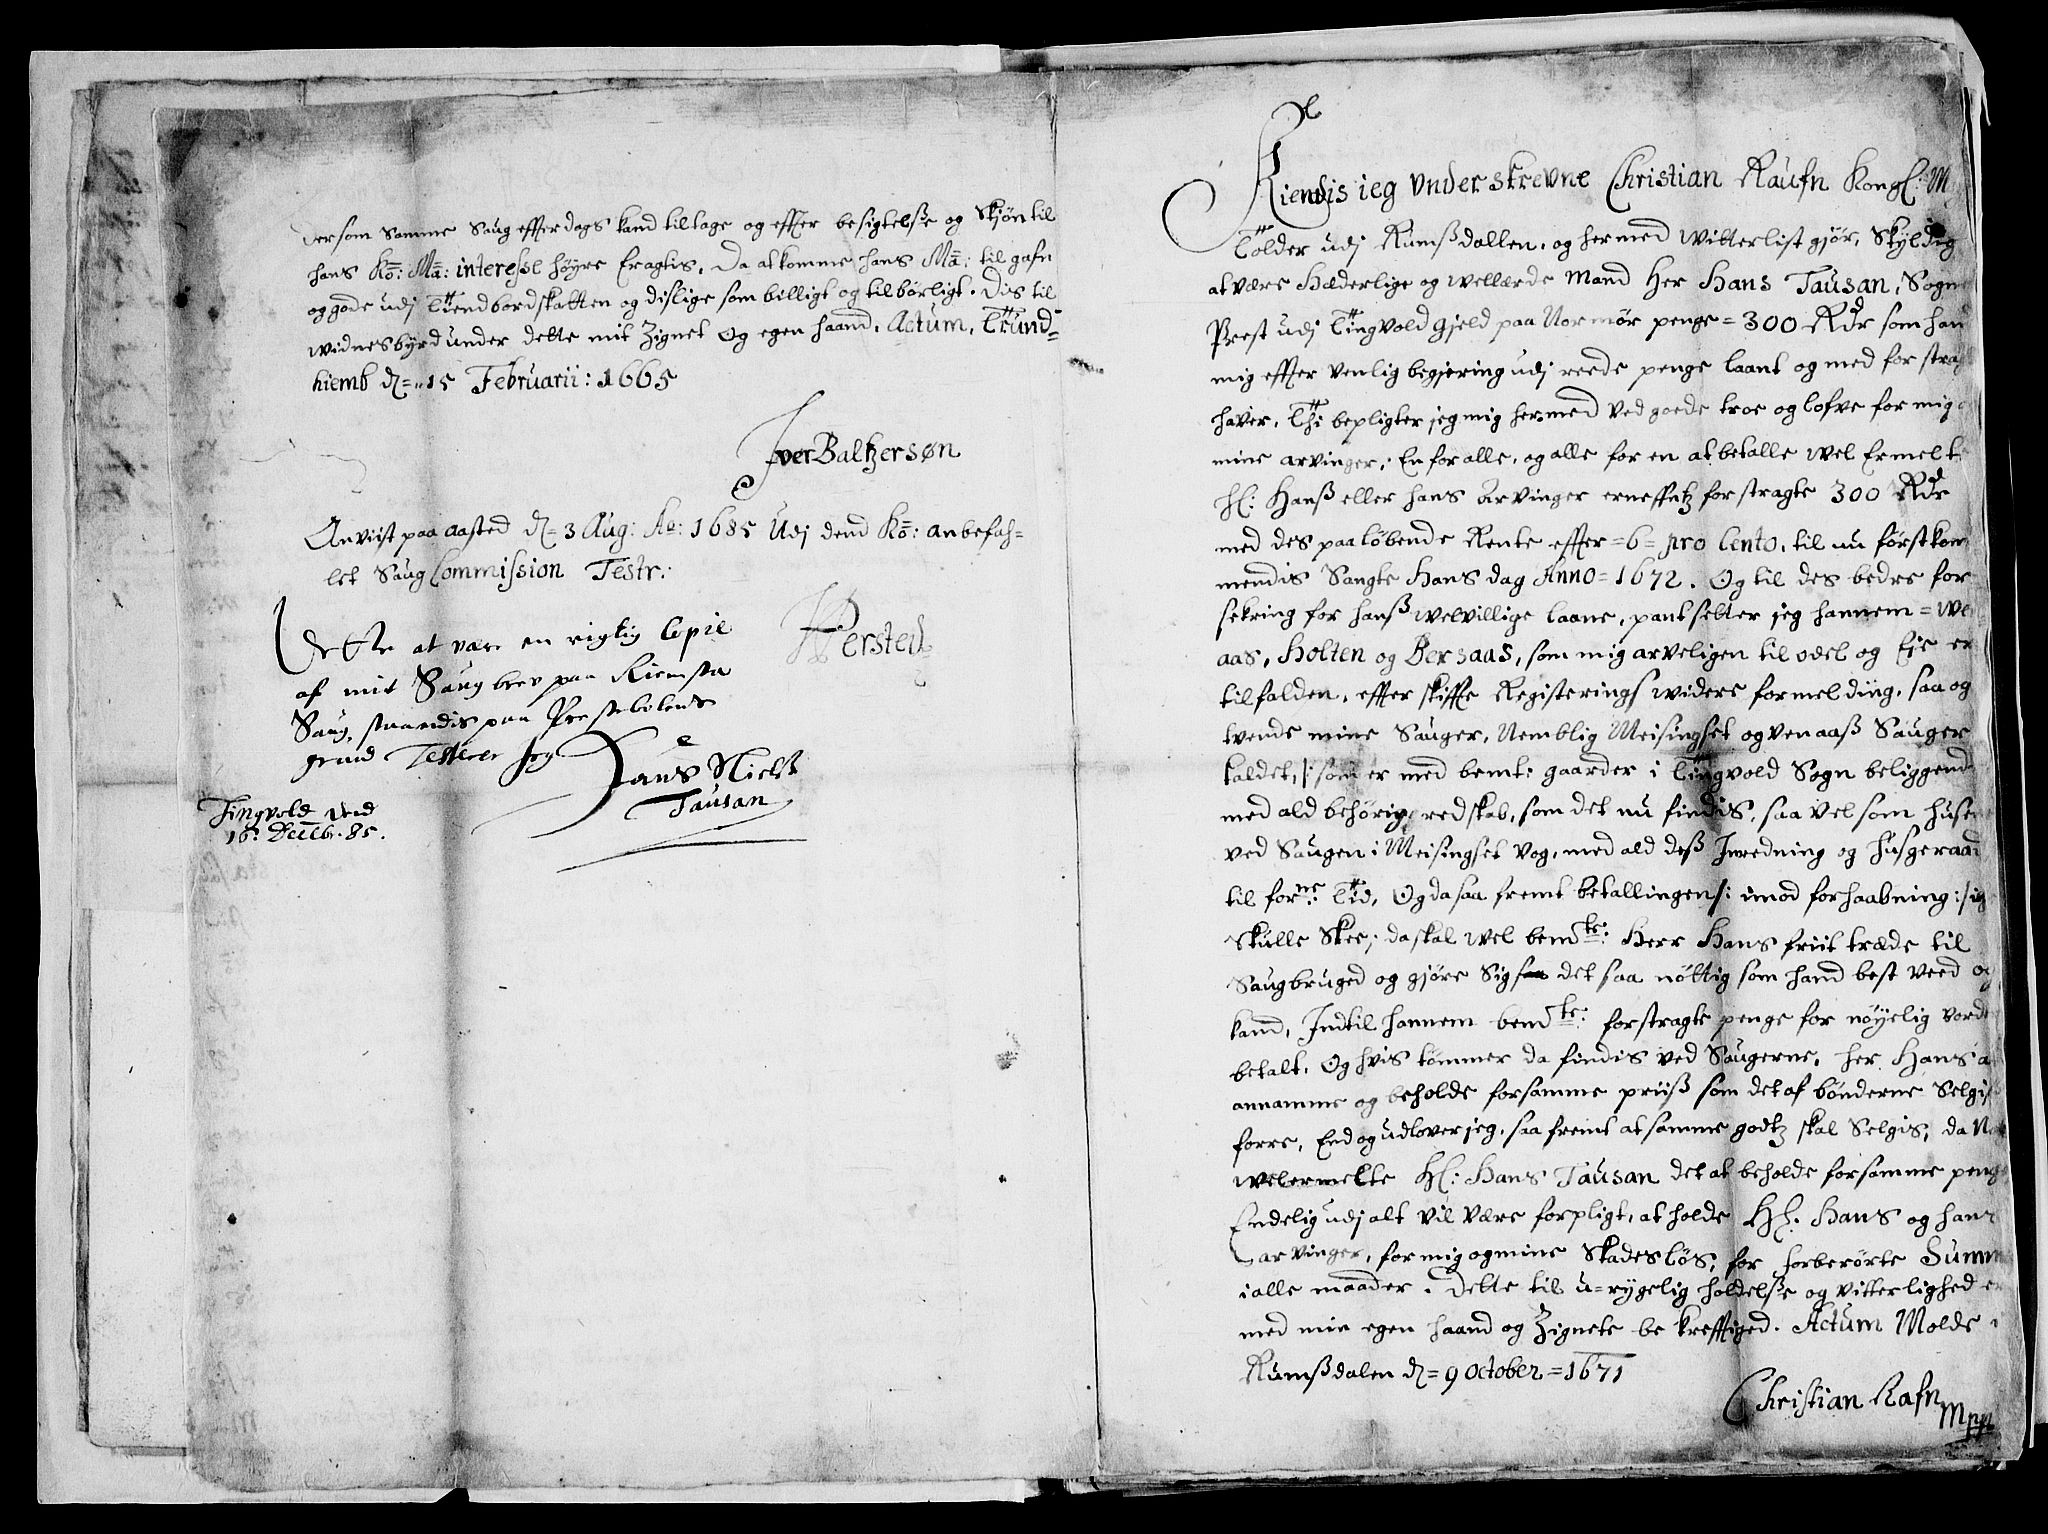 dersom samme Saug effterdags kand tiltage og effter besigtelsse og Skjøn til
hans Ko: Ma: interesse høyre Eragtis, Da atkomme hans Ma: til gafn
og gode udj Tiendbordskatten og dislige som billigt og tilbørligt. Dis til
widnesbyrd under dette mit Zignet Og egen haand, Actum, Trund=
hiemb d= 15 Februarii: 1665
Iver Baltzersøn
Anviist paa aasted d= 3 Aug: Ao: 1685 Udj dend Ko: anbefah=
let Saug Commission Testr:
Persten
Dette at være en rigtig Copie
af mit Saug brev paa Kiemsta
Saug, staaendis paa Prestebolens
grund Testerer Jeg
Hans Nielss:
Tausan
Tingvold dend
16: Decemb. 85.
Kiendis ieg underskrevne Christian Raufn Kongl: M
Tolder udj Rumssdallen, og hermed witterlist gjør, Skyldig
at være Hæderlige og wellærde Mand Her Hans Tausan, Sogne
Prest udj Tingvold gjeld paa Normør penge = 300 Rdr som hand
mig effter venlig begjering udj reede penge laant og med forstragt
haver, Thi bepligter jeg mig hermed ved goede troe og lofve for mig o
mine arvinger, En for alle, og alle for en at betalle wel Ermelte
Hl: Hanss eller hans arvinger erneffntz forstragte 300 Rdr
med des paaløbende Rente effter = 6 = pro Cento, til nu førstkom
mendis Sangte Hans dag Anno = 1672. Og til des bedre for
sekring for hanss welvillige laane, pantsetter jeg hannem = We
aas, Holten og Bersaas, som mig arveligen til odel og Eje er
tilfalden, effter skiffte Registerings widere formelding, saa og
tvende mine Sauger, Nemblig Meisingset og venaass Sauger
kaldet, /: som er med bemte gaarder i Tingvold Sogn beliggend
med ald behørige redskab, som det nu findis, saa vel som husene
ved Saugen i Meisingset Vog, med ald dess Inredning og husgeraad
til forne: Tid, Og da saa fremt betallingen /: imod forhaabning :/ icke
Skulle Skee, da skal wel bemte: Herr Hans friit træde til
Saugbruged og gjøre Sig det saa nøttig som hand best veed og
kand, Indtil hannem bemte: forstragte penge for nøyelig vorder
betalt, Og hvis tømmer da findis ved Saugerne, her Hans a
annamme og beholde for samme priiss som det af bønderne Selgis
forre, End og udlover jeg, saa fremt at samme godtz skal Selgis, da
welermelte Hl: Hans Tausan det at beholde for samme penge
Endelig udj alt vil være forpligt, at holde Hl. Hans og hans
arvinger, for mig og mine Skadesløs, for forberørte Summ
i alle maader. Dette til u=rygelig holdelsse og vitterlighed er
med min egen haand og Zignete bekrefftiged. Actum Molde i
Rumssdalen d= 9 October = 1671
Christian Rafn
Mpp